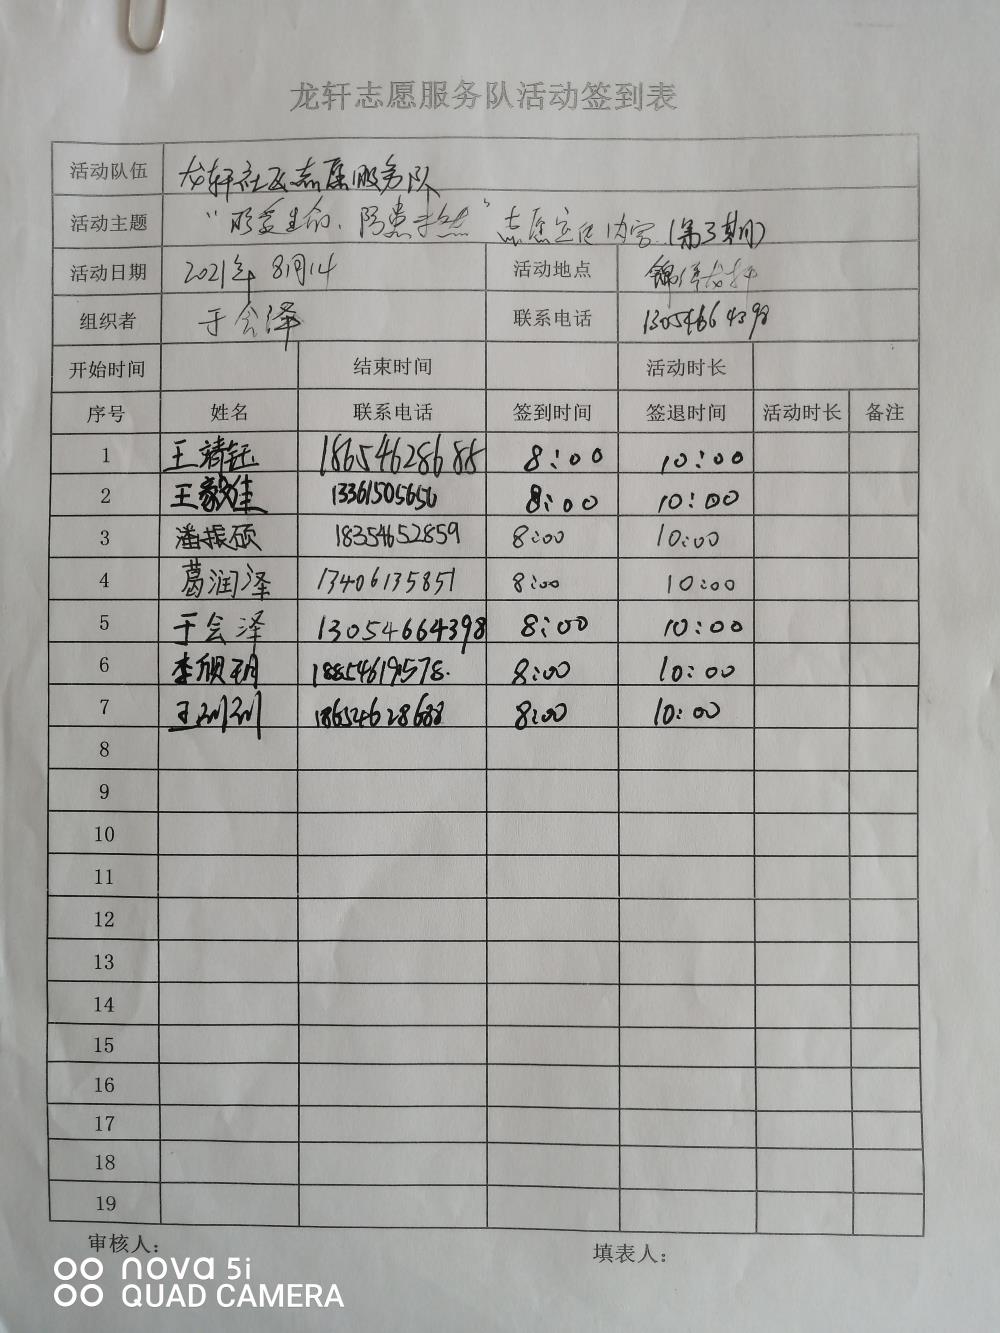 龙轩志愿服务队活动签到表
活动队伍 龙轩社区志愿服务队
活动主题 生命、防患未然"志愿 内容(第3期)
活动日期 2021年8月14 活动地点 锦 龙轩
组织者 于会泽 联系电话 13054664398
开始时间 结束时间 活动时长
序号 姓名 联系电话 签到时间 签退时间 活动时长 备注
1 王靖钰 18654628688 8:00 10:00
2 王毅佳 13361505650 8:00 10:00
3 潘振硕 18354652859 8:00 10:00
4 葛润泽 13406135851 8:00 10:00
5 于会泽 13054664398 8:00 10:00
6 李 玥 18854619578. 8:00 10:00
7 王 18654628688 8:00 10:00
8
9
10
11
12
13
14
15
16
17
18
19
审核人: 填表人:
nova 5i
QUAD CAMERA